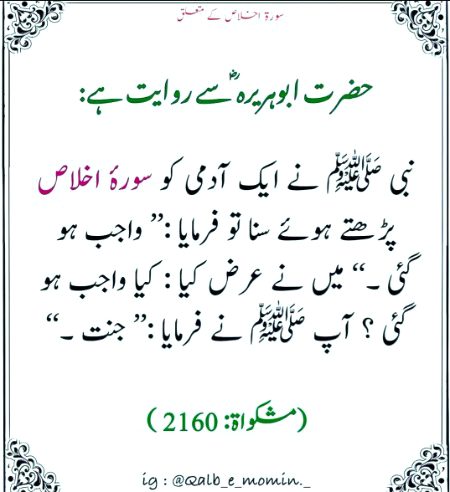 سورۃ اخلاص کے متعلق
حضرت ابوہریرہؓ سے روایت ہے:
نبی ﷺ نے ایک آدمی کو سورۂ اخلاص
پڑھتے ہوئے سنا تو فرمایا :” واجب ہو
گئی ۔“ میں نے عرض کیا : کیا واجب ہو
گئی ؟ آپ ﷺ نے فرمایا :” جنت ۔“
(مشکواۃ: 2160 )
ig : @Qalb_e_momin._